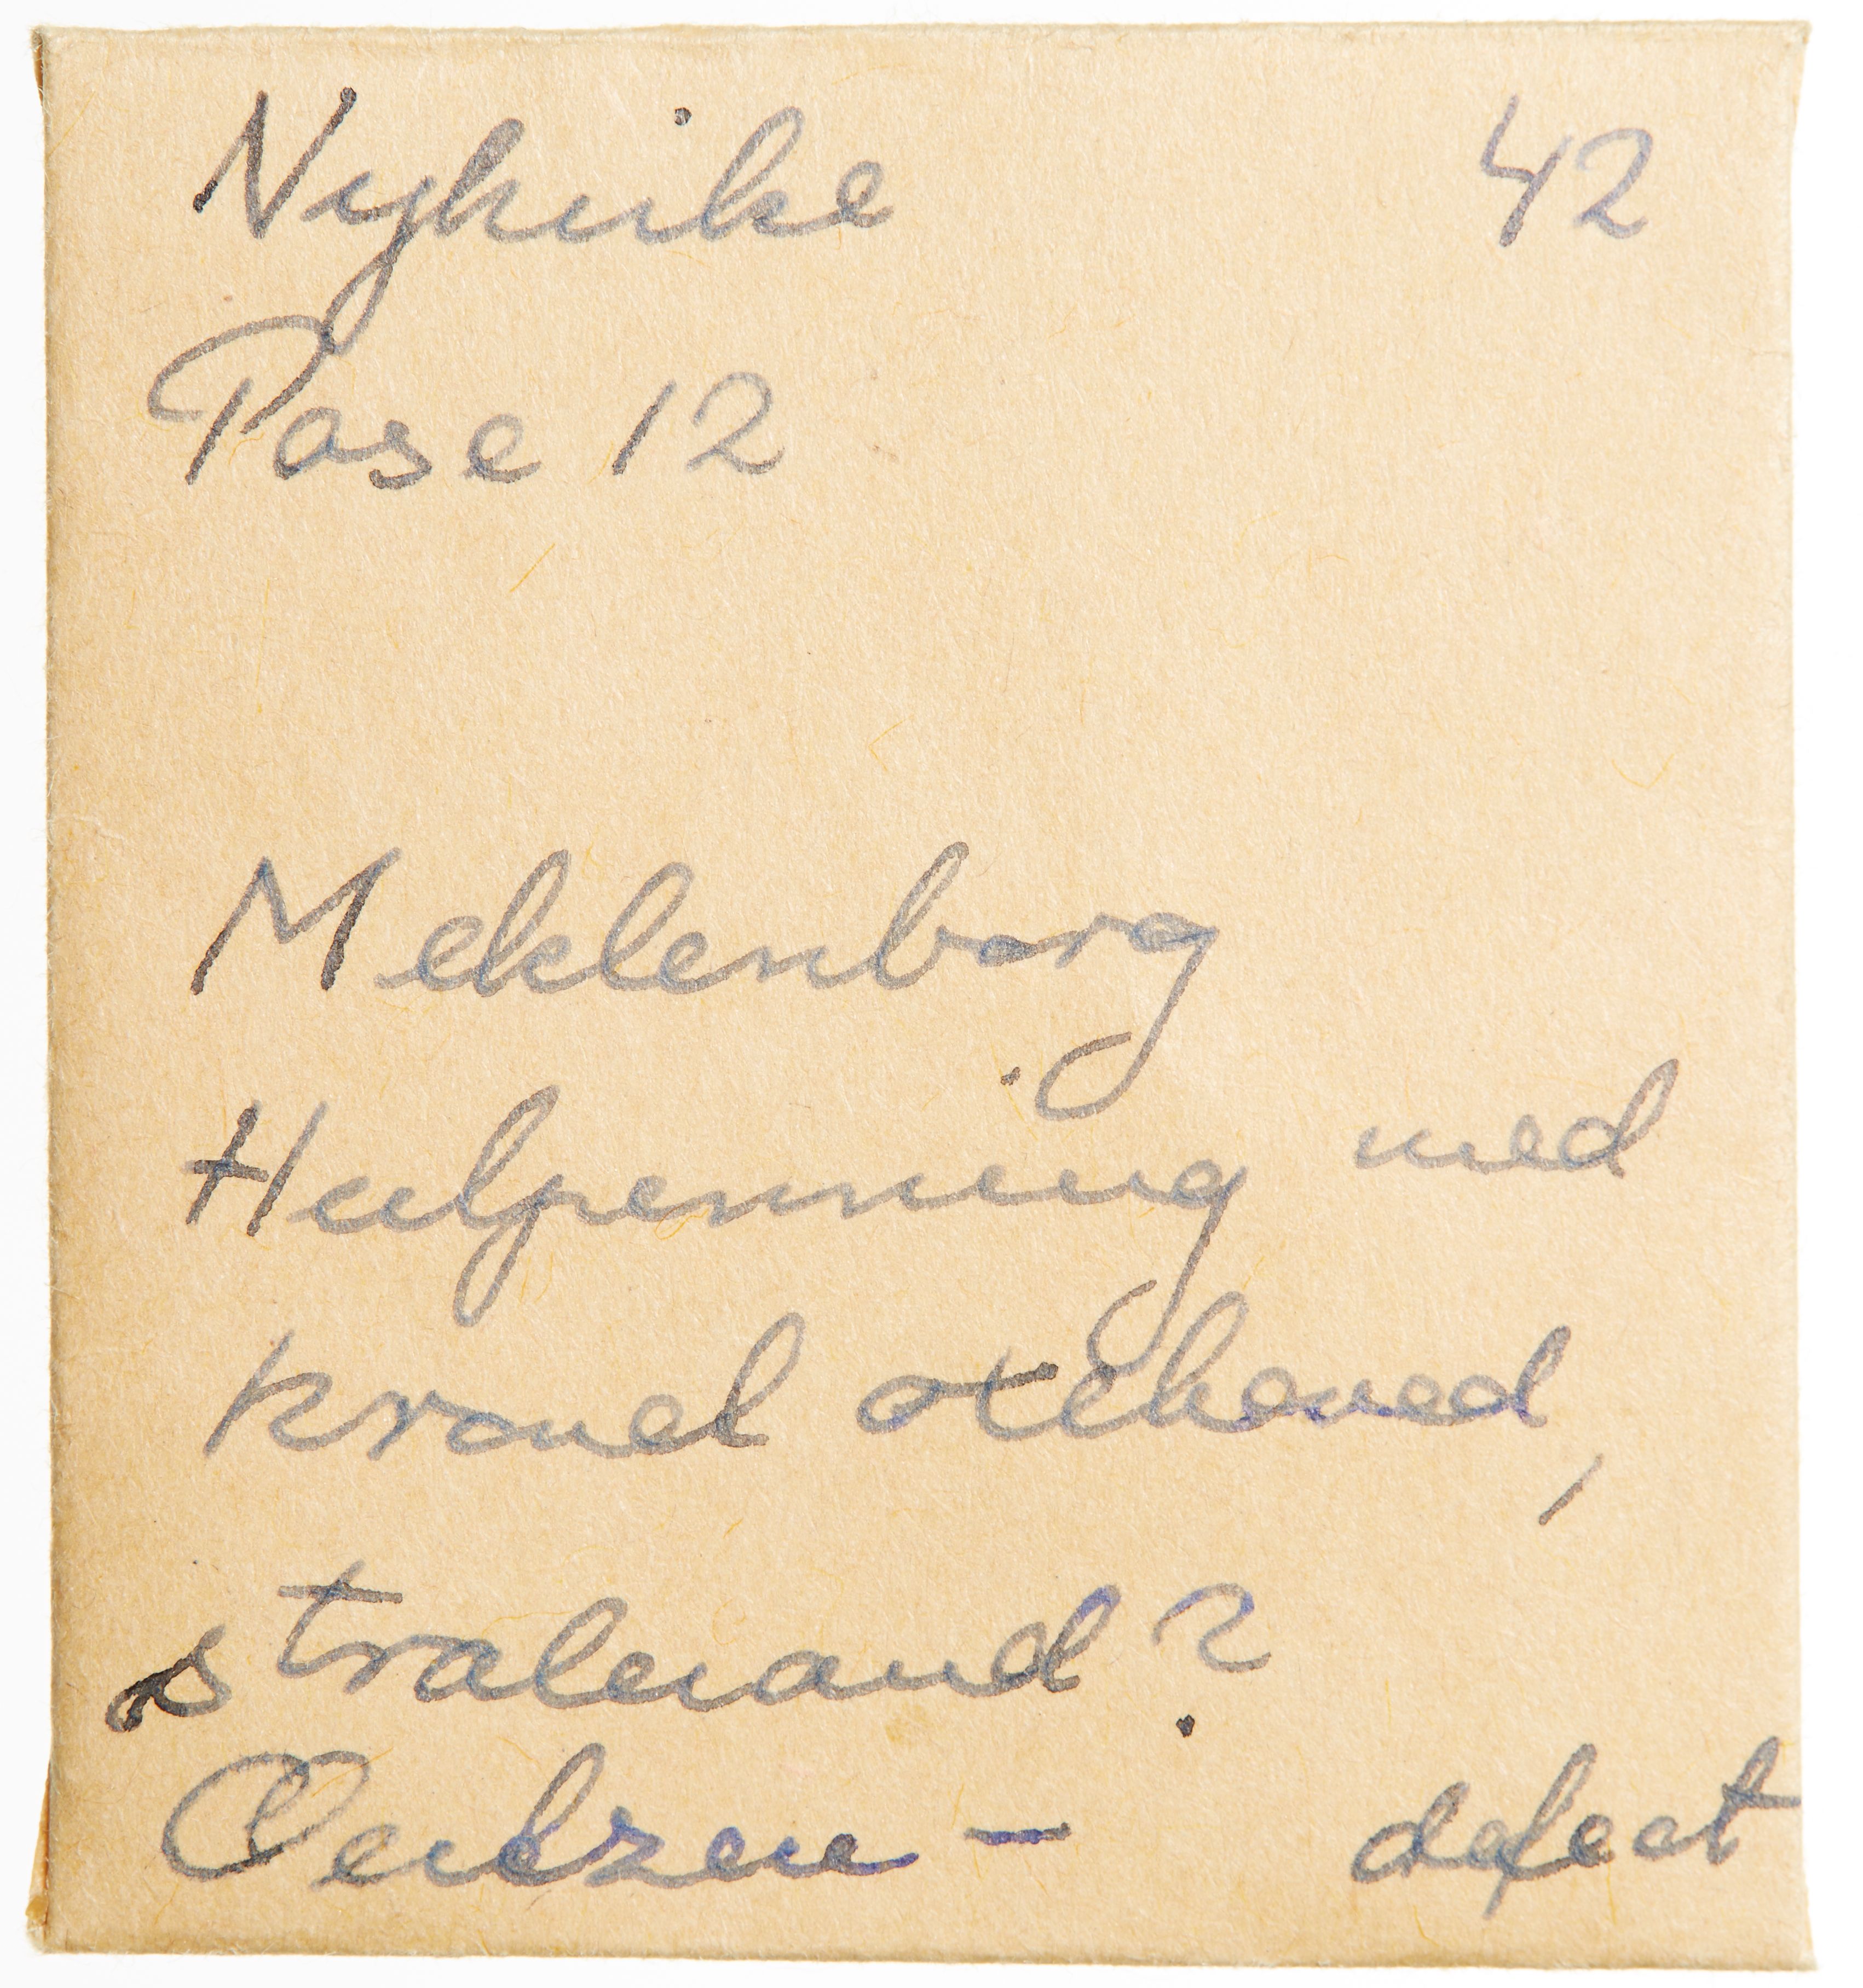 Nykirke 42
Pose 12
Meklenborg
Hulpenning med
kronet oxehoved,
stralerand?
Oertzen - defect